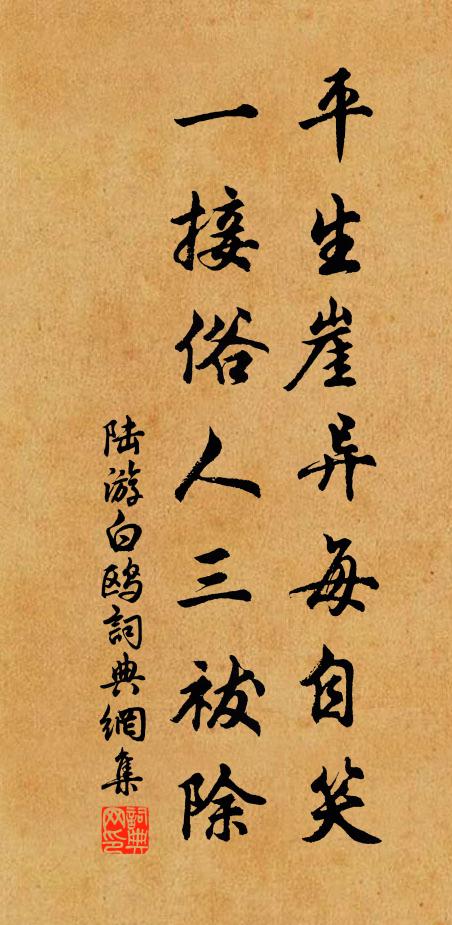 平生崖异每自笑
一接俗人三祓除
陆游白鸥詞典網集
詞典网印